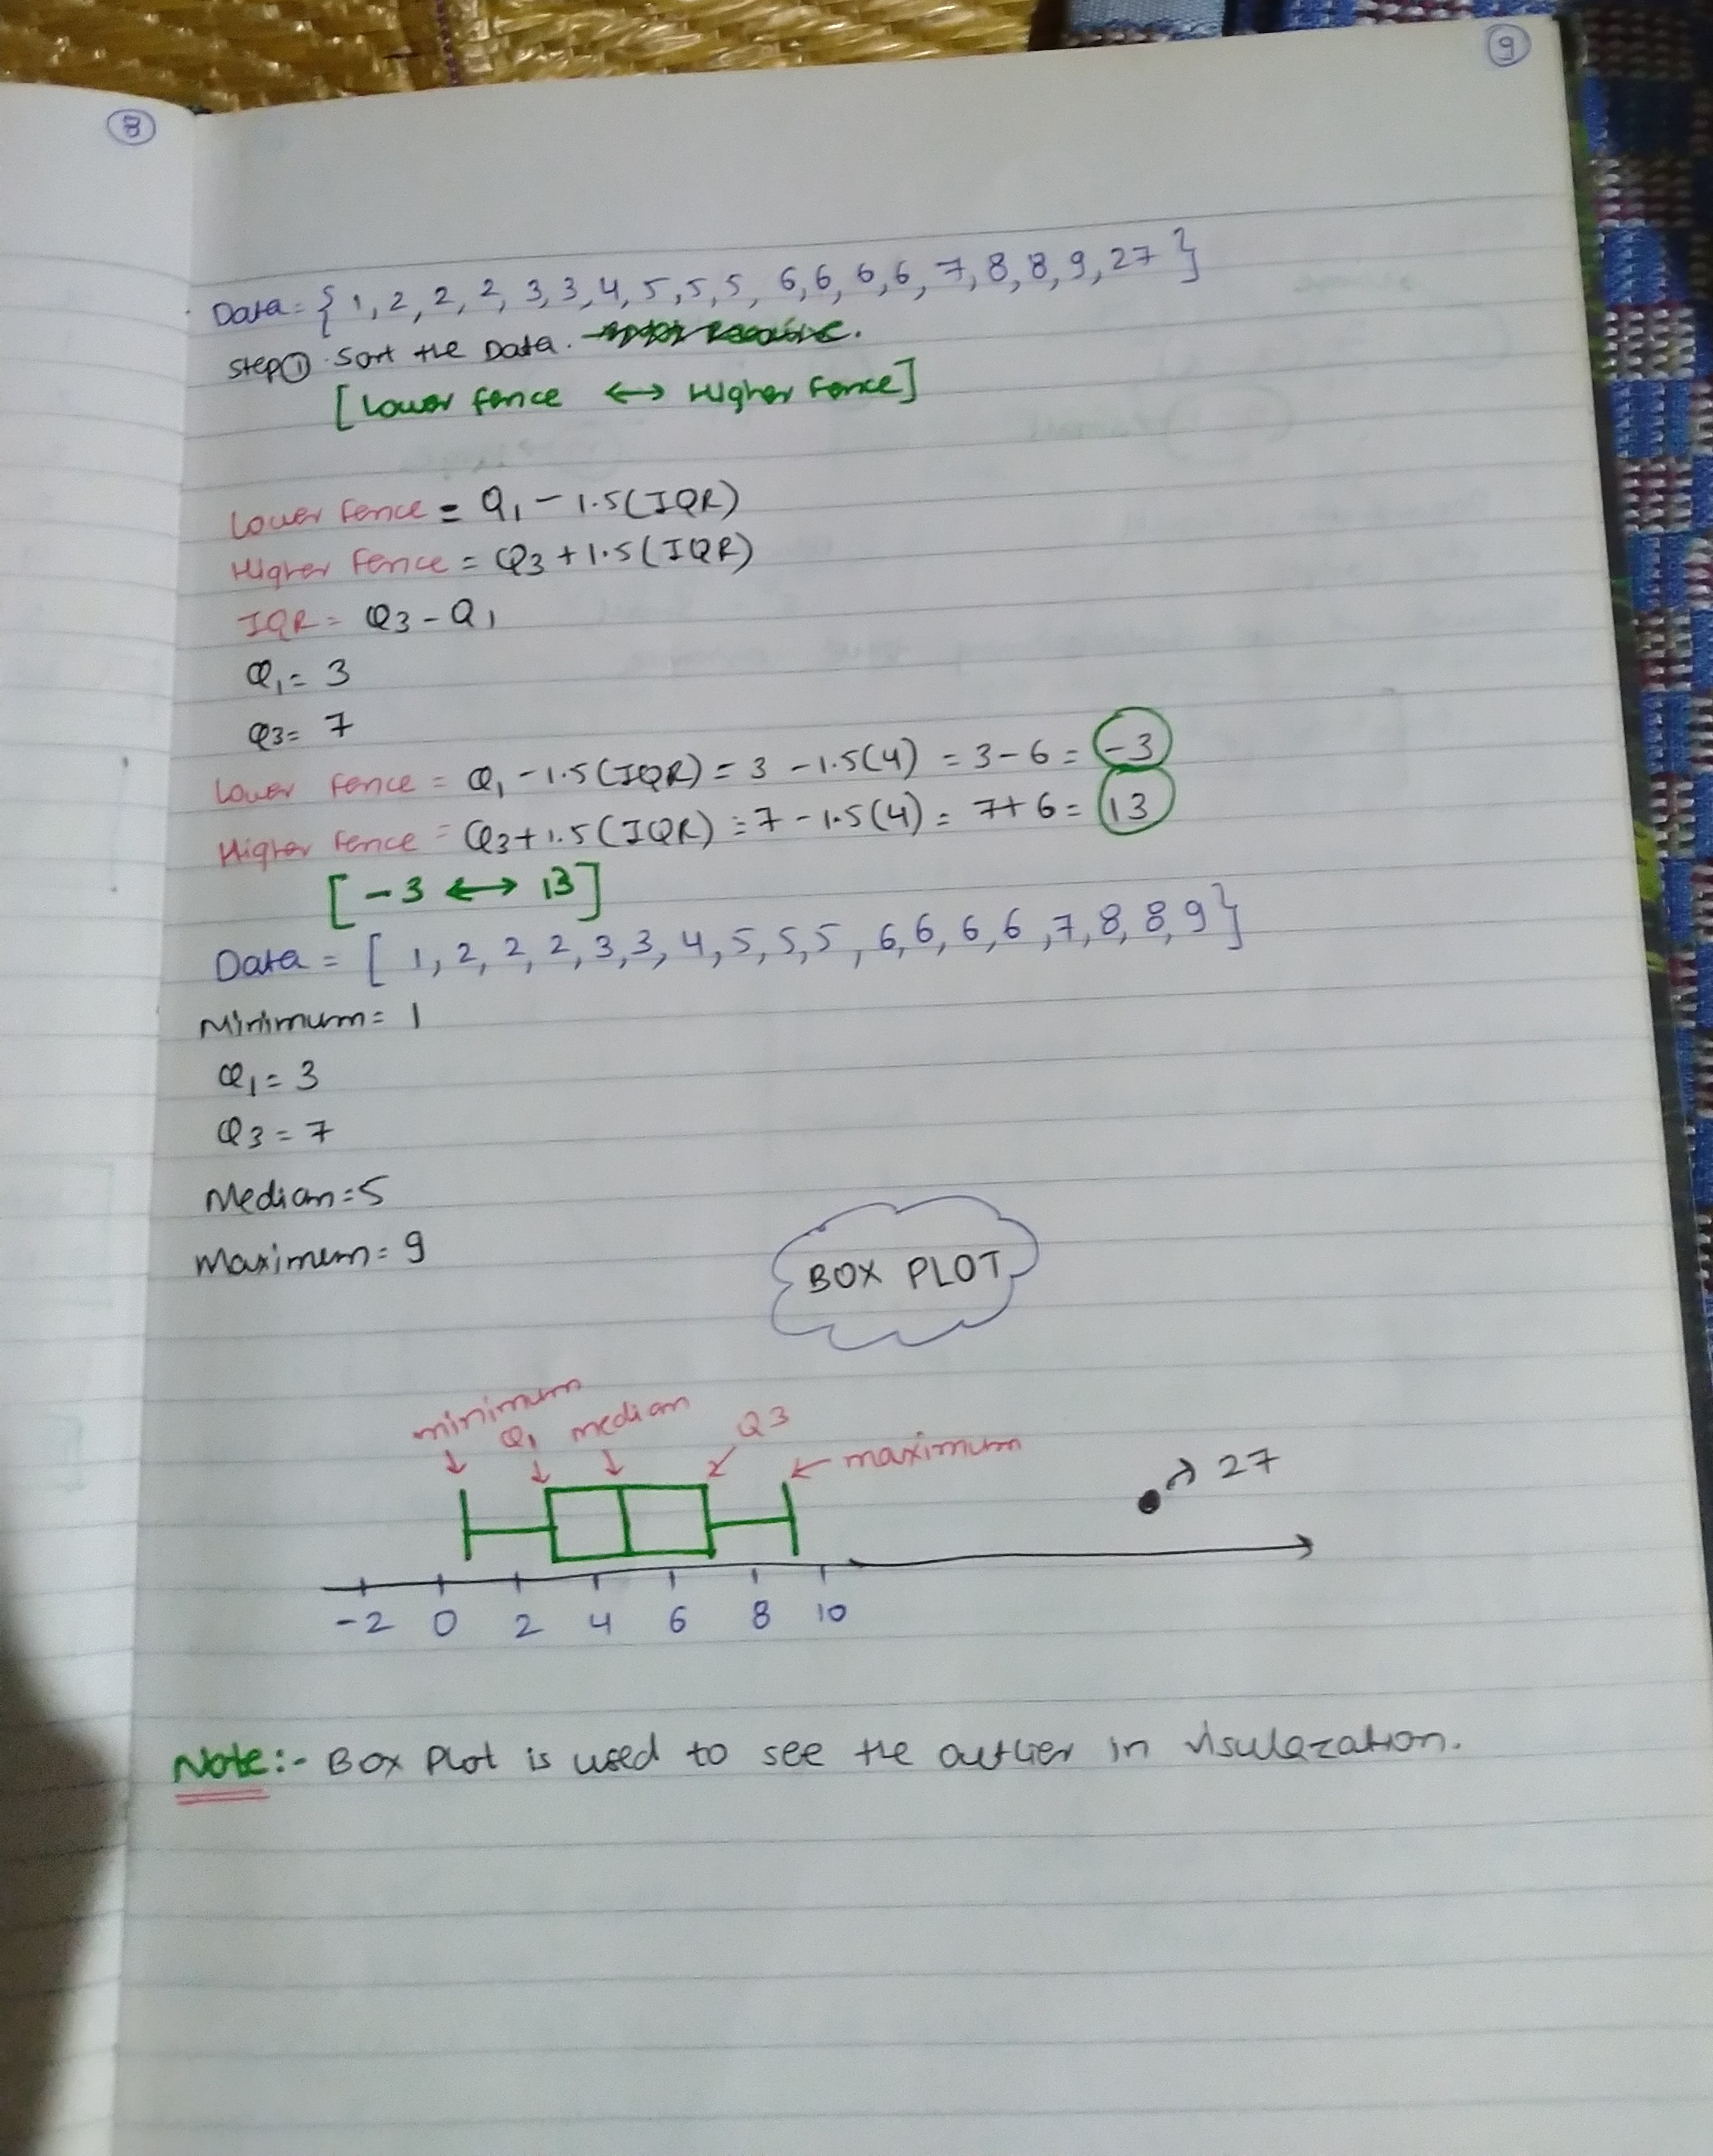 8
9
Data = { 1, 2, 2, 2, 3, 3, 4, 5, 5, 5, 6, 6, 6, 6, 7, 8, 8, 9, 27 }
Step ① Sort the Data.
[Lower fence ↔ Higher Fence]
Lower Fence = Q1 - 1.5(IQR)
Higher Fence = Q3 + 1.5(IQR)
IQR = Q3 - Q1
Q1 = 3
Q3 = 7
Lower Fence = Q1 - 1.5(IQR) = 3 - 1.5(4) = 3 - 6 = -3
Higher Fence = Q3 + 1.5(IQR) = 7 - 1.5(4) = 7 + 6 = 13
[-3 ↔ 13]
Data = [ 1, 2, 2, 2, 3, 3, 4, 5, 5, 5, 6, 6, 6, 6, 7, 8, 8, 9 }
Minimum = 1
Q1 = 3
Q3 = 7
Median = 5
Maximum = 9
BOX PLOT
minimum
Q1 median Q3
maximum
27
-2 0 2 4 6 8 10
Note:- Box Plot is used to see the outlier in visulazation.